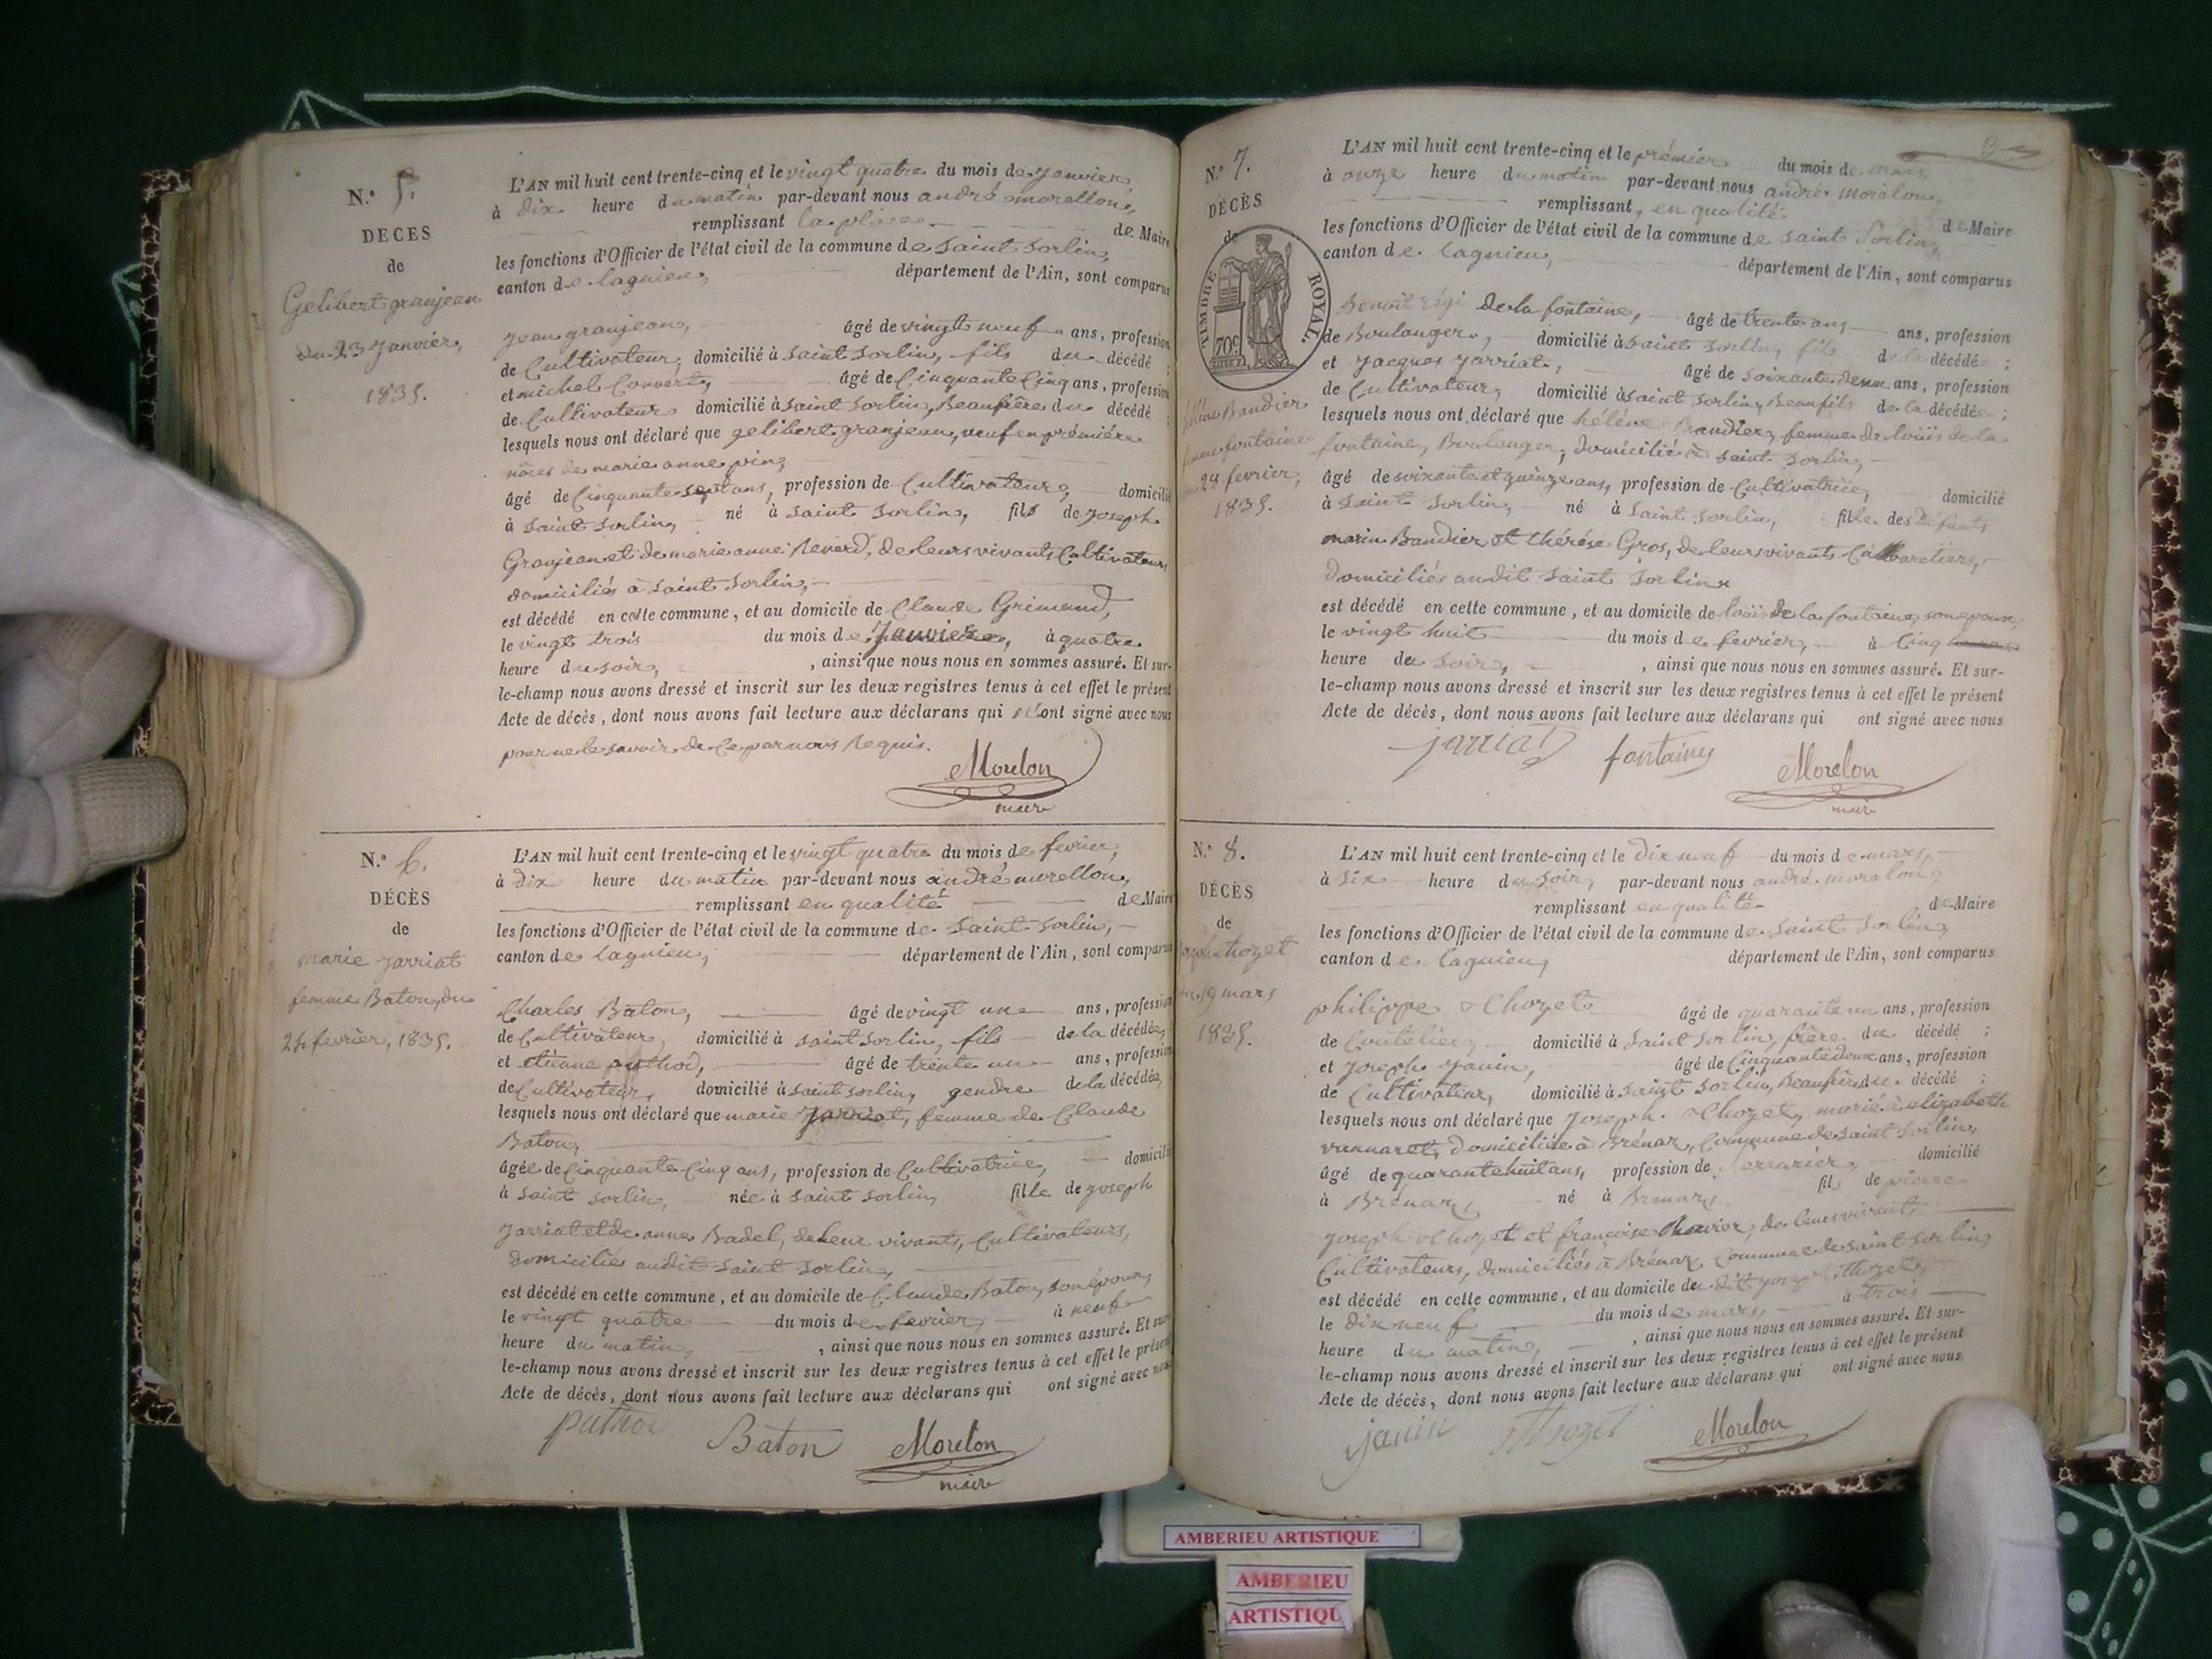 N.° 5.
DECES
de
Gelibert granjean
du 23 Janvier,
1835.
L'AN mil huit cent trente-cinq et le vingt quatre du mois de Janvier,
à dix heure du matin par-devant nous andré morellon,
remplissant la place de Maire
les fonctions d'Officier de l'état civil de la commune de Saint Sorlin,
canton de lagnieu, département de l'Ain, sont comparus
Jean granjean, âgé de vingt neuf ans, profession
de Cultivateur, domicilié à Saint Sorlin, fils du décédé ;
et michel Convert, âgé de Cinquante Cinq ans, profession
de Cultivateur domicilié à Saint Sorlin, Beaufrère du décédé ;
lesquels nous ont déclaré que gelibert granjean, veuf en première
nôces de marie anne pin,
âgé de Cinquante sept ans, profession de Cultivateur, domicilié
à Saint Sorlin, né à Saint Sorlin, fils de Joseph
Granjean et de marie anne Renard, de leurs vivants Cultivateurs
domiciliés à Saint Sorlin,
est décédé en cette commune, et au domicile de Claude Grimand,
le vingt trois du mois de Janvier, à quatre
heure du soir, , ainsi que nous nous en sommes assuré. Et sur-
le-champ nous avons dressé et inscrit sur les deux registres tenus à cet effet le présent
Acte de décès, dont nous avons fait lecture aux déclarans qui n'ont signé avec nous
pour ne le savoir de Ce par nous Requis.
Morelon
maire
N.° 6.
DÉCÈS
de
marie Jarriat
femme Baton, du
24 fevrier, 1835.
L'AN mil huit cent trente-cinq et le vingt quatre du mois de fevrier,
à dix heure du matin par-devant nous andré morellon,
remplissant en qualité de Maire
les fonctions d'Officier de l'état civil de la commune de Saint Sorlin,
canton de lagnieu, département de l'Ain, sont comparus
Charles Baton, âgé de vingt une ans, profession
de Cultivateur, domicilié à Saint Sorlin, fils de la décédée,
et etienne puthod, âgé de trente un ans, profession
de Cultivateur, domicilié à Saint Sorlin, gendre de la décédée,
lesquels nous ont déclaré que marie Jarriat, femme de Claude
Baton,
âgée de Cinquante Cinq ans, profession de Cultivatrice, domicilié
à Saint Sorlin, née à Saint Sorlin, fille de Joseph
Jarriat et de anne Badel, de leur vivants, Cultivateurs,
domiciliés audit Saint Sorlin,
est décédé en cette commune, et au domicile de Claude Baton, son époux,
le vingt quatre du mois de fevrier, à neuf
heure du matin, , ainsi que nous nous en sommes assuré. Et sur-
le-champ nous avons dressé et inscrit sur les deux registres tenus à cet effet le présent
Acte de décès, dont nous avons fait lecture aux déclarans qui ont signé avec nous
puthod Baton Morelon
maire
N.° 7.
DÉCÈS
de
TIMBRE ROYAL.
70c
hélène Bandier
femme fontaine
28 fevrier,
1835.
L'AN mil huit cent trente-cinq et le prémier du mois de mars,
à onze heure du matin par-devant nous andré moralon,
remplissant, en qualité de Maire
les fonctions d'Officier de l'état civil de la commune de Saint Sorlin,
canton de lagnieu, département de l'Ain, sont comparus
Benoit régi de la fontaine, âgé de trente ans ans, profession
de Boulanger, domicilié à Saint Sorlin, fils de la décédée ;
et Jacques Jarriat, âgé de soixante deux ans, profession
de Cultivateur, domicilié à Saint Sorlin, Beaufils de la décédée ;
lesquels nous ont déclaré que hélène Bandier, femme de loüis de la
fontaine, Boulanger, domicilié à Saint Sorlin,
âgé de soixante et quinze ans, profession de Cultivatrice, domicilié
à Saint Sorlin, né à Saint Sorlin, fille des défunts
marin Bandier et thérèse Gros, de leurs vivants Cabaretiers,
domiciliés audit Saint Sorlin
est décédé en cette commune, et au domicile de loüis de la fontaine, son epoux,
le vingt huit du mois de fevrier, à Cinq
heure du soir, , ainsi que nous nous en sommes assuré. Et sur-
le-champ nous avons dressé et inscrit sur les deux registres tenus à cet effet le présent
Acte de décès, dont nous avons fait lecture aux déclarans qui ont signé avec nous
jarriat fontaine Morelon
maire
N.° 8.
DÉCÈS
de
joseph thozet
du 19 mars
1835.
L'AN mil huit cent trente-cinq et le dix neuf du mois de mars,
à six heure du soir, par-devant nous andré moralon,
remplissant en qualité de Maire
les fonctions d'Officier de l'état civil de la commune de Saint Sorlin,
canton de lagnieu, département de l'Ain, sont comparus
philippe thozet âgé de quarante un ans, profession
de Coutelier, domicilié à Saint Sorlin, frère du décédé ;
et Joseph Janin, âgé de Cinquante deux ans, profession
de Cultivateur, domicilié à Saint Sorlin, Beaufrère du décédé ;
lesquels nous ont déclaré que Joseph thozet, marié à elizabeth
vannaret, domiciliée à Brénaz, Commune de Saint Sorlin,
âgé de quarante huit ans, profession de domicilié
à Brénaz, né à Brénaz, fils de pierre
Joseph thozet et françoise de leurs vivants
Cultivateurs, domiciliés à Brénaz, Commune de Saint Sorlin,
est décédé en cette commune, et au domicile du dit Joseph thozet,
le dix neuf du mois de mars, à trois
heure du matin, , ainsi que nous nous en sommes assuré. Et sur-
le-champ nous avons dressé et inscrit sur les deux registres tenus à cet effet le présent
Acte de décès, dont nous avons fait lecture aux déclarans qui ont signé avec nous
janin thozet Morelon
AMBERIEU ARTISTIQUE
AMBERIEU
ARTISTIQU